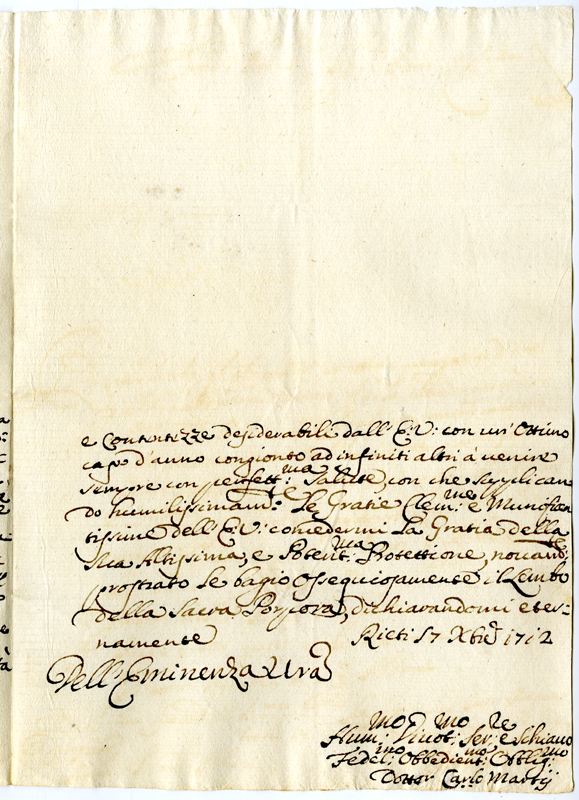 e Contentezze desiderabili dall' E: V: con un' Ottimo
capo d'anno congionto ad infiniti altri à venire
sempre con perfett:ma Salute, con che supplican
do humilissimam:te Le Gratie Clem:me e Munifian
tissime dell' E: V: concedermi La Gratia della
Sua Altissima, e Potent:ma Protettione,
prostrato Le bagio Ossequiosamente il Lembo
della Sacra Porpora, dichiarandomi eter-
namente Rieti 17 Xbre 1712
Dell' Eminenza Vra
Hum:mo Divot:mo Ser:re e Schiavo
Fedel:mo Obbedient:mo Obblig:mo
Dottor Carlo Martij